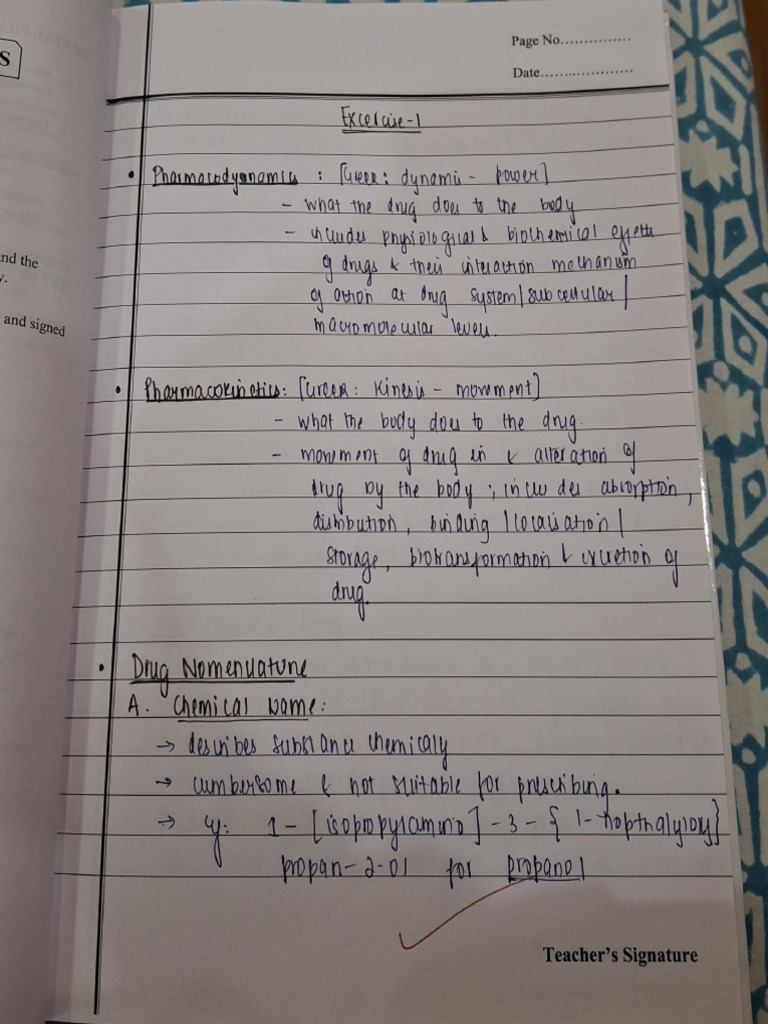 S
Page No..............
Date.....................
Excercise-1
• Pharmacodyanamics : [Greek: dynamis - power]
- what the drug does to the body
- includes physiological & biochemical effects
of drugs & their interaction mechanism
of action at drug system/subcellular/
macromolecular levels.
nd the
y.
and signed
• Pharmacokinetics: [Greek: Kinesis - movement]
- what the body does to the drug.
- movement of drug in & alteration of
drug by the body ; includes absorption,
distribution, binding /localisation/
storage, biotransformation & excretion of
drug.
• Drug Nomenclature
A. Chemical Name:
→ describes substance chemicaly
→ cumbersome & not suitable for prescribing.
→ eg: 1-[isopropylamino]-3-{1-napthalyloxy}
propan-2-ol for propanol
Teacher's Signature